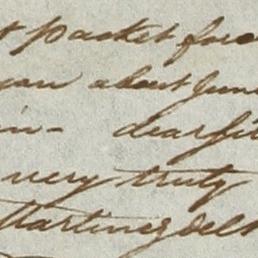 packet for
you about June
in - dear Sir
very truly
Martinez del